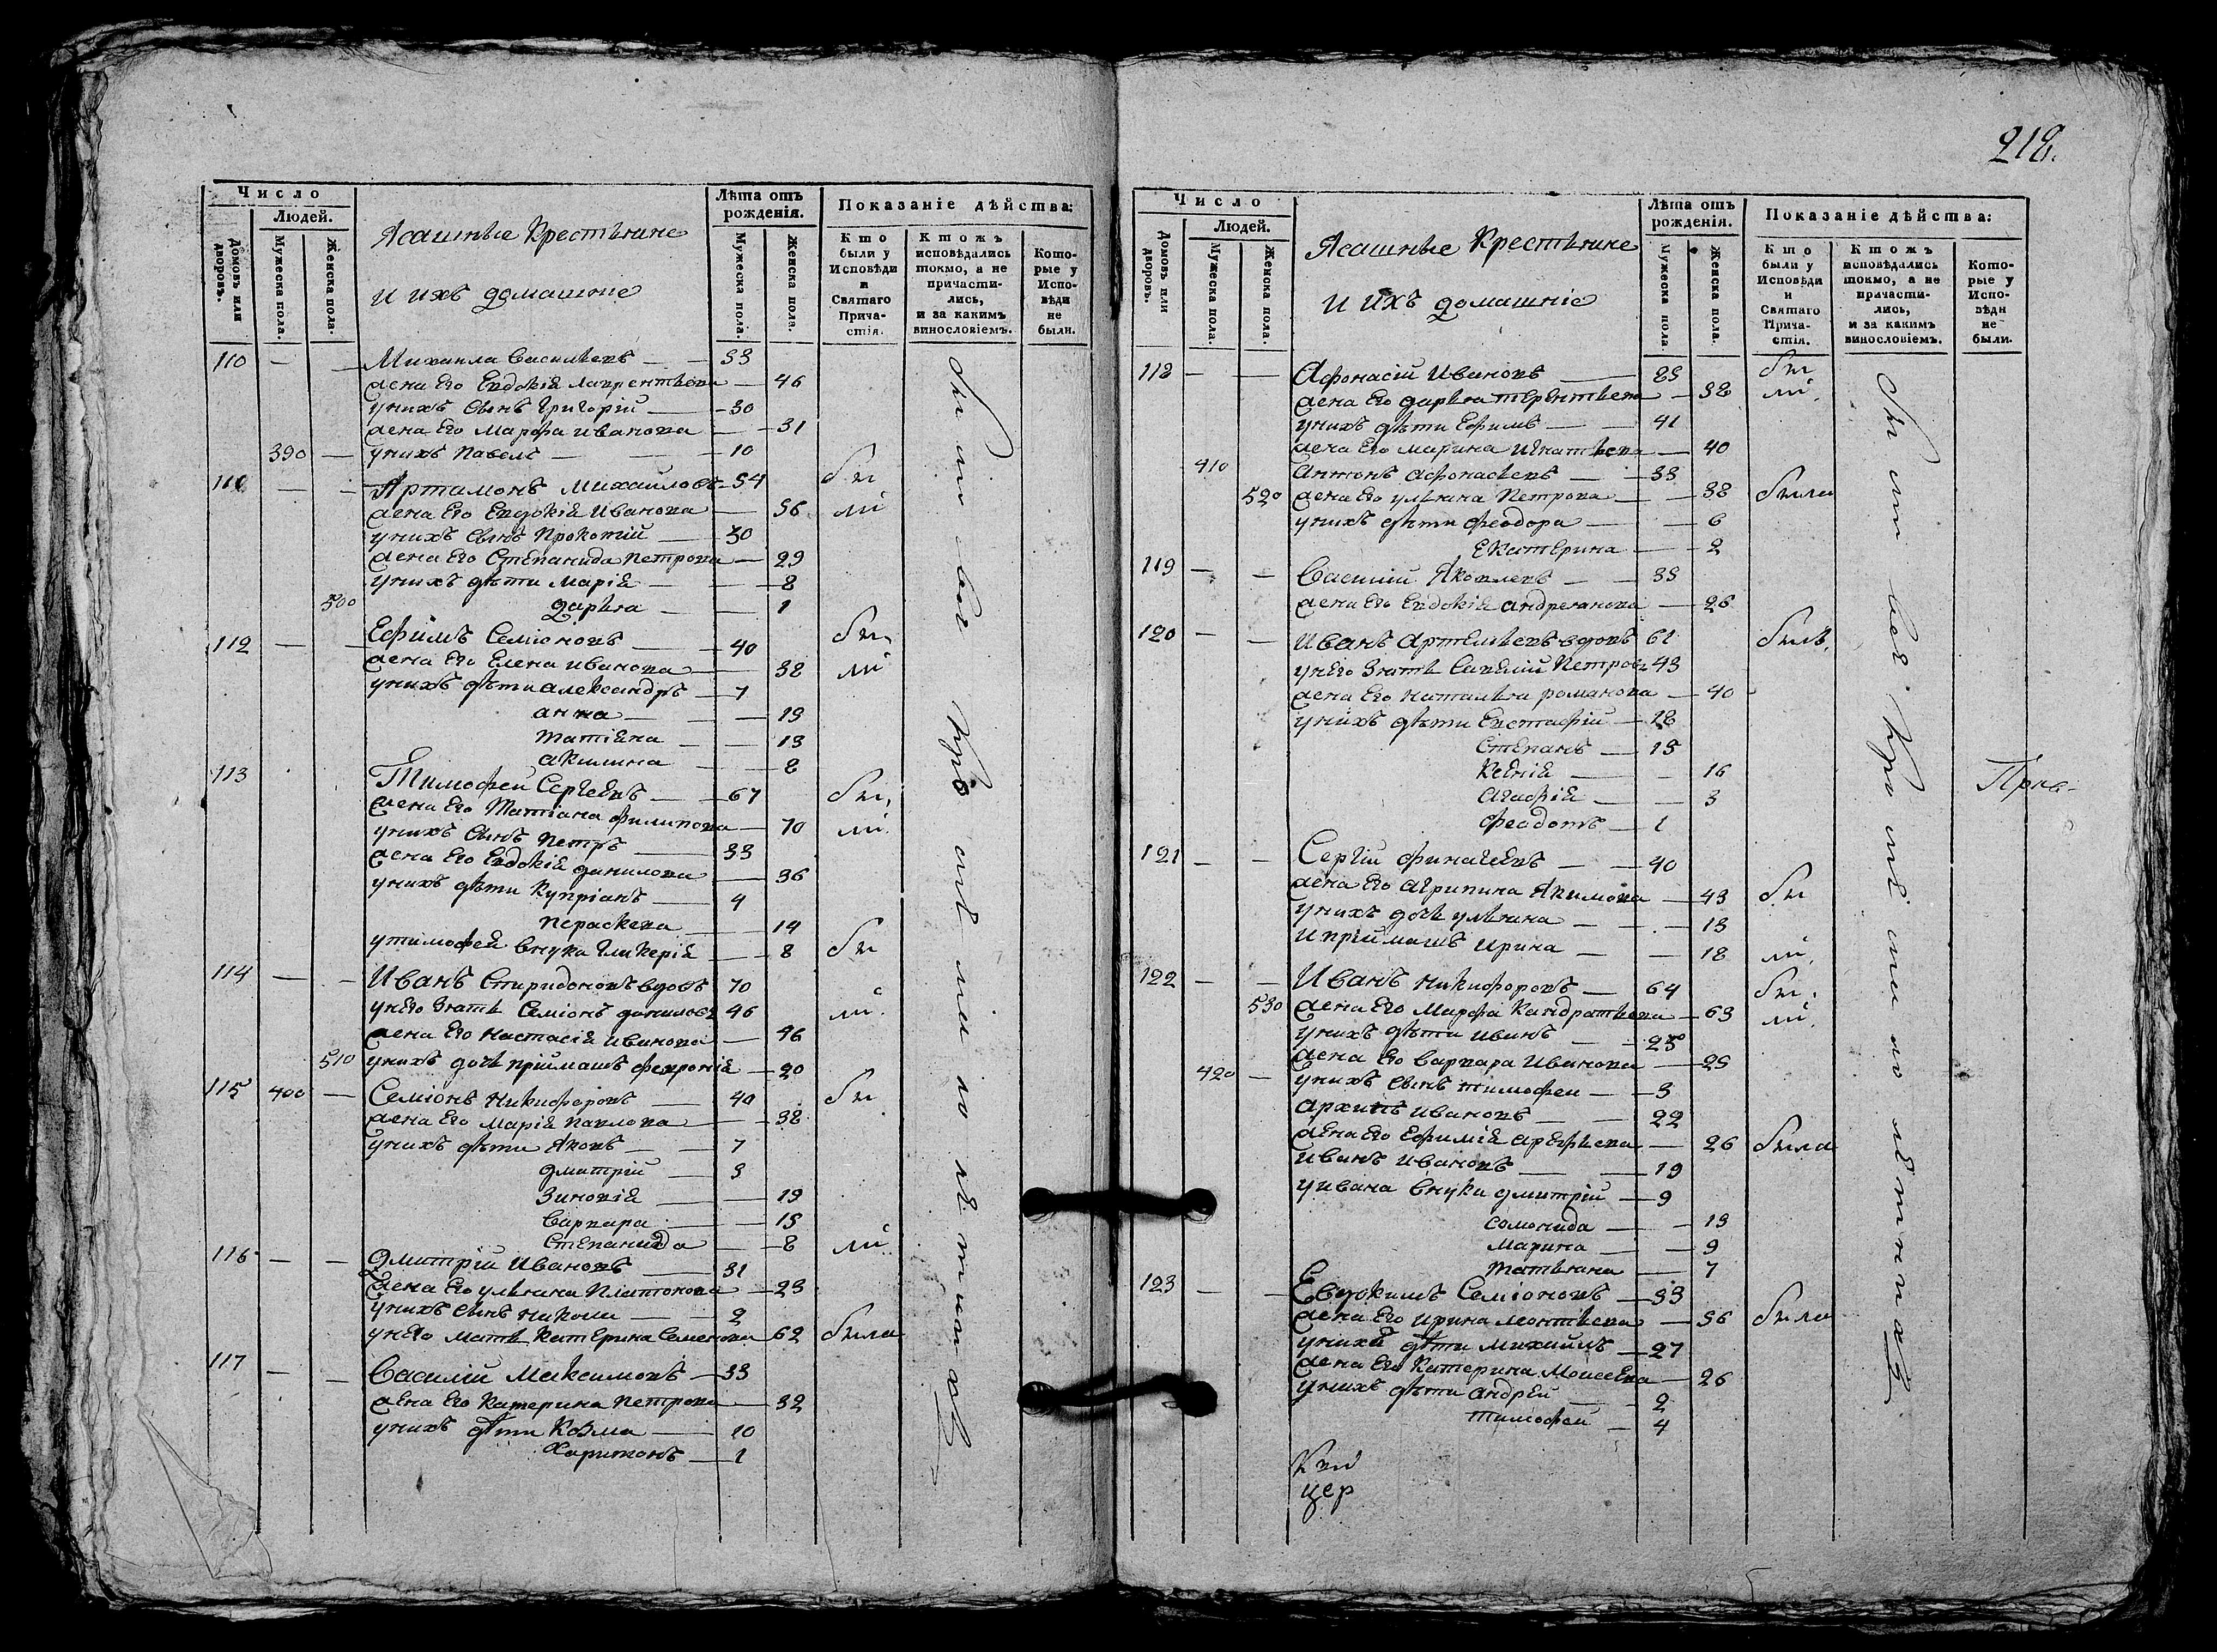 Число
Людей.
Домовъ или дворовъ.
Мужеска пола.
Женска пола.
Ясашные Крестьяне
и ихъ домашние
Лѣта отъ рожденія.
Мужеска пола.
Женска пола.
Показаніе дѣйства:
Кто были у Исповѣди и Святаго Причастія.
Ктожъ исповѣдались токмо, а не причастились, и за какимъ винословіемъ.
Которые у Исповѣди не были.
110 — — Михаила Васильевъ — 53
жена Его Евдокія лаврентьева — 46
унихъ сынъ Григорій — 30
жена Его Марфа иванова — 31
390 — унихъ Павелъ — 10
111 — — Артамонъ Михаиловъ — 54 бы
жена Его Евдокія Иванова — 56 ли
унихъ сынъ Прокопій — 30
жена Его Степанида Петрова — 29
унихъ дѣти Марія — 8
500 дарья — 1
112 — — Ефимъ Семіоновъ — 40 бы,
жена Его Елена иванова — 38 ли
унихъ дѣти александръ — 7
анна — 19
татіяна — 13
акилина — 8
113 Тимофей Сергеевъ — 67 бы,
жена Его Татіана филипова — 70 ли.
унихъ сынъ Петръ — 33
жена Его Евдокія данилова — 36
унихъ дѣти Купріанъ — 4
параскева — 14
утимофея внука Гликерія — 8 бы
114 — — Иванъ Спиридоновъ вдовъ 70
унего зять Семіонъ даниловъ 46 ли.
жена Его Настасія иванова — 46
510 унихъ дочь пріймашъ февронія — 20
115 400 — Семіонъ Никифоровъ — 40 бы
жена Его Марія Павлова — 38
унихъ дѣти Яковъ — 7
дмитрій — 3
Зиновія — 19
Варвара — 15
Степанида — 8 ли
116 — — Дмитрій Ивановъ — 31
жена Его ульяна Платонова — 23
унихъ сынъ никола — 2
унего мать Катерина Семенова 62 была
117 — — Василій Максимовъ — 33
жена Его Катерина Петрова — 32
унихъ дѣти Козма — 10
Харитонъ — 1
218.
Число
Людей.
Домовъ или дворовъ.
Мужеска пола.
Женска пола.
Ясашные Крестьяне
и ихъ домашніе
Лѣта отъ рожденія.
Мужеска пола.
Женска пола.
Показаніе дѣйства:
Кто были у Исповѣди и Святаго Причастія.
Ктожъ исповѣдались токмо, а не причастились, и за какимъ винословіемъ.
Которые у Исповѣди не были.
118 — — Афонасій Ивановъ — 85 бы
жена Его дарья терентьева — 38 ли.
унихъ дѣти Ефимъ — 41
жена Его марина игнатьева — 40
410 Антонъ афонасьевъ — 33
520 жена Его ульяна Петрова — 38 была
унихъ дѣти феодора — 6
Екатерина — 2
119 — — Василій Яковлевъ — 35
жена Его Евдокія андреянова — 26
120 — — Иванъ Артемьевъ вдовъ 61 былъ.
унего зять Савелій Петровъ 43
жена Его наталья романова — 40
унихъ дѣти Евстафій — 18
Степанъ — 15
Ксенія — 16
Агафія — 3
Феодотъ — 1
121 — — Сергій Финагеевъ — 40
жена Его Агрипина Якимова — 43 бы
унихъ дочь ульяна — 13
и пріймашъ Ирина — 18 ли.
122 — — Иванъ Никифоровъ — 64 бы.
530 жена Его Марфа Кандратьева — 63 ли.
унихъ дѣти иванъ — 25
жена Его Варвара Иванова — 25
420 — унихъ сынъ тимофеи — 3
Архипъ Ивановъ — 22
жена Его Ефимія арефьева — 26 была
иванъ Ивановъ — 19
уивана внуки дмитрій — 9
соломонида — 13
марина — 9
татьяна — 7
123 — — Евдокимъ Семіоновъ — 53
жена Его ирина леонтьева — 56 была
унихъ дѣти михаилъ — 27
жена Его Катерина Моисеева — 26
унихъ дѣти андрей — 2
тимофей — 4
цер